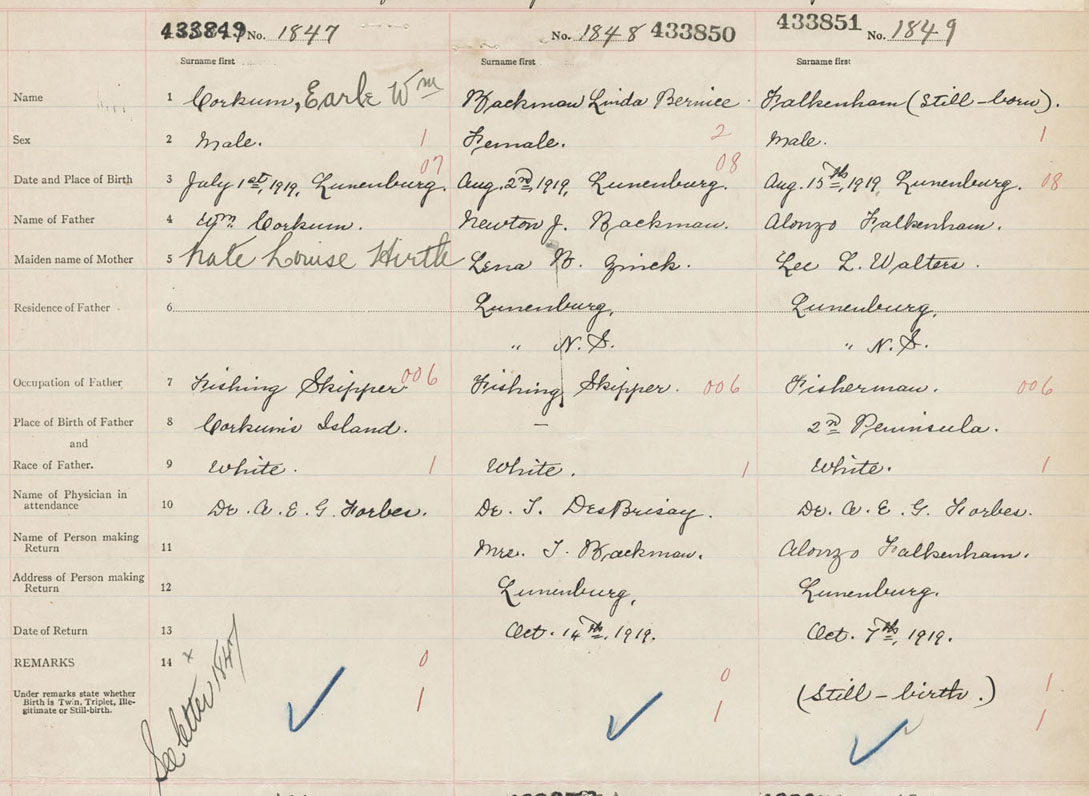 433849 No. 1847 No. 1848 433850 433851 No. 1849
Surname first Surname first Surname first
Name 1 Corkum, Earle Wm Backman Linda Bernice. Falkenham (Still-born).
Sex 2 Male. 1 Female. 2 Male. 1
07 08
Date and Place of Birth 3 July 1st, 1919, Lunenburg. Aug. 2nd, 1919, Lunenburg. Aug. 15th, 1919, Lunenburg. 08
Name of Father 4 Wm. Corkum. Newton J. Backman. Alonzo Falkenham.
Maiden name of Mother 5 Kate Louise Hirtle Lena B. Zinck. Lee L. Walters.
Residence of Father 6 Lunenburg, Lunenburg,
" N.S. " N.S.
Occupation of Father 7 Fishing Skipper 006 Fishing Skipper. 006 Fisherman. 006
Place of Birth of Father 8 Corkum's Island. — 2nd Peninsula.
and
Race of Father. 9 White. 1 White. 1 White. 1
Name of Physician in
attendance 10 Dr. A. E. G. Forbes. Dr. T. DesBrisay. Dr. A. E. G. Forbes.
Name of Person making
Return 11 Mrs. J. Backman. Alonzo Falkenham.
Address of Person making
Return 12 Lunenburg, Lunenburg.
Date of Return 13 Oct. 14th, 1919. Oct. 7th, 1919.
REMARKS 14 0 0
Under remarks state whether
Birth is Twin, Triplet, Ille-
gitimate or Still-birth. 1 1 (Still-birth.) 1
1
See letter 1847